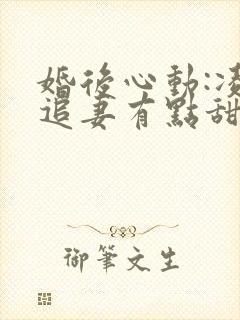 婚後心動:凌
追妻有點甜
御筆文生